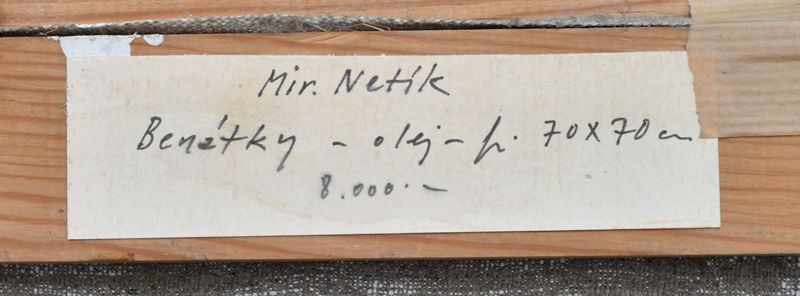 Mir. Netík
Benátky - olej - pl. 70X70 cm
8.000.-